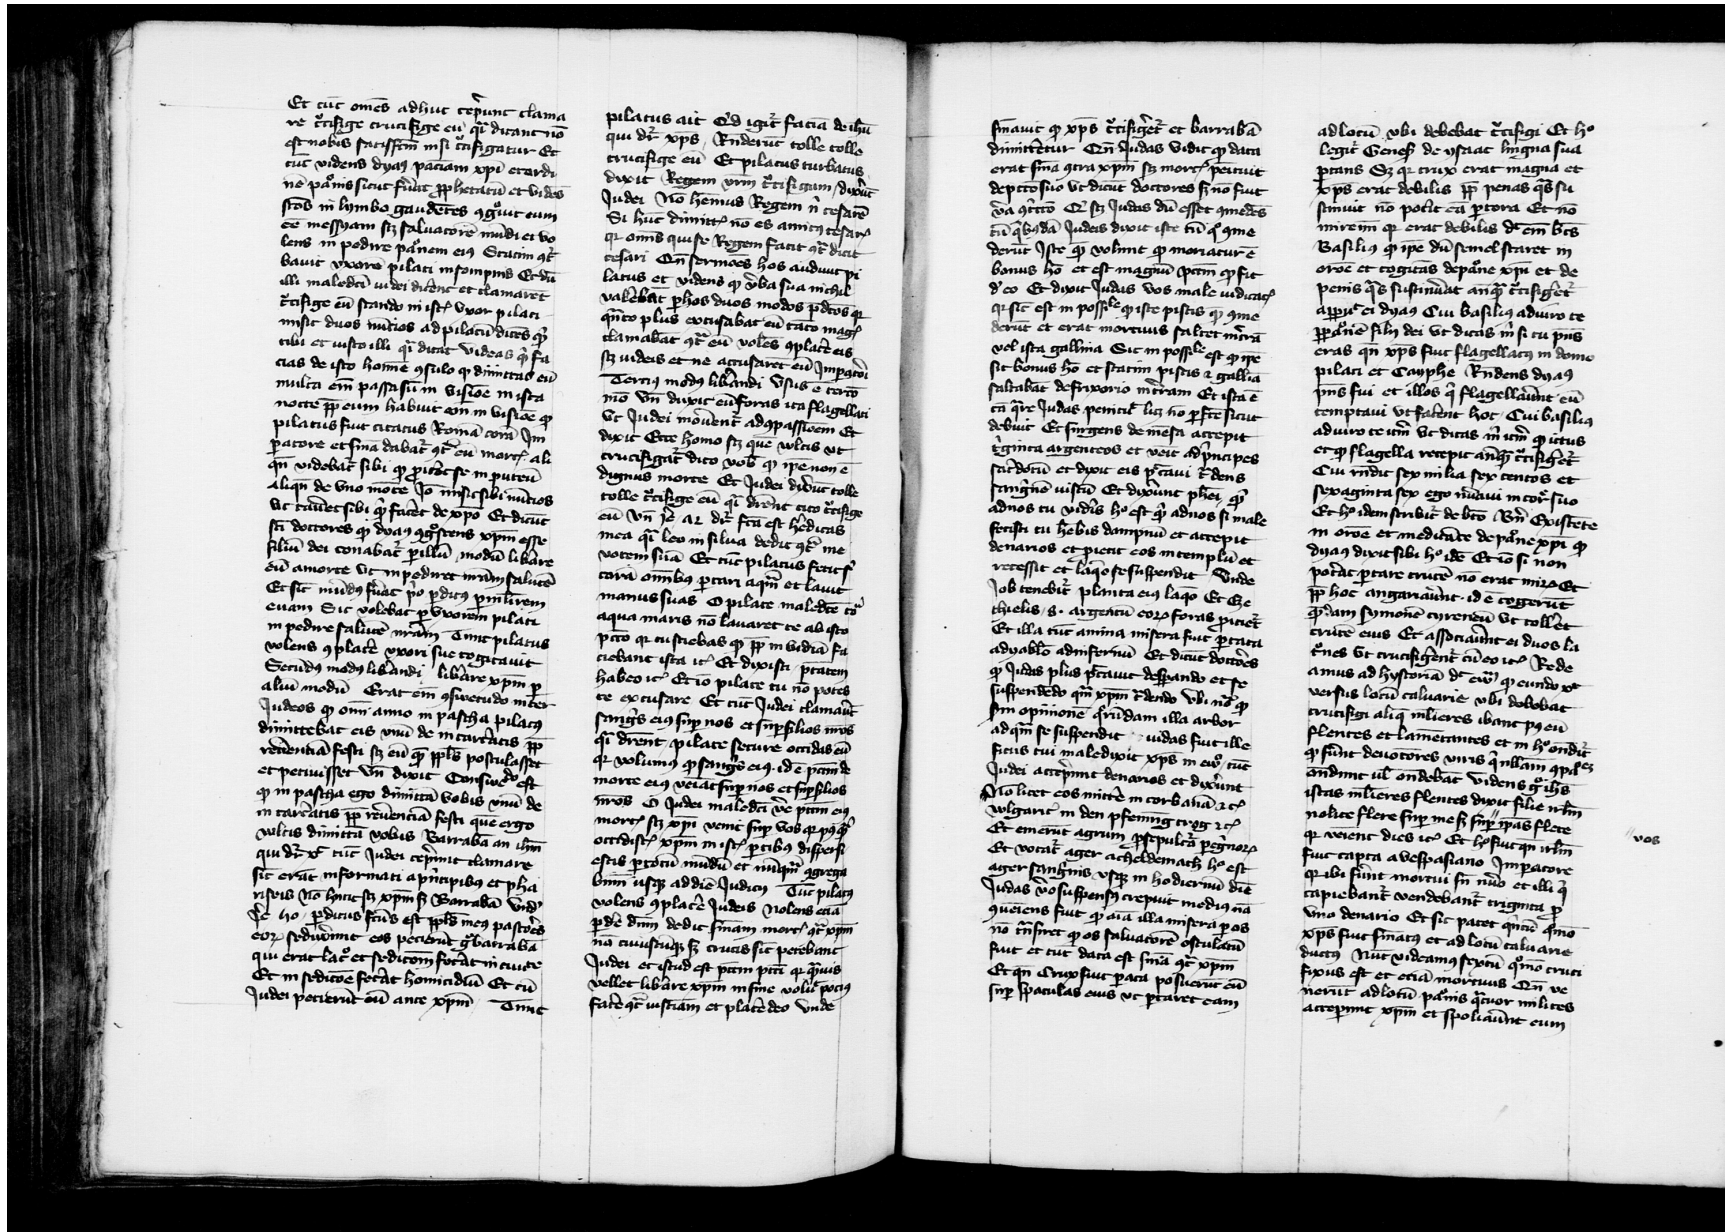 Et tūc om̄es adhuc cep̄unt clama
re c̓cifige crucifige eū q̓ dicant nō
est nobis satisfc̄m nisi c̓cifigatur Et
tūc videns dyaꝰ paciam xp̄i et ordi
nē pa̓nis sicut fūat ꝓphetatū et vidēs
sc̄os in lymbo gaudētes ꝯg̓uit eum
eē messyam sꝫ saluatorē mūdi et vo
lens inpedire pa̓nem eiꝰ Statim ꝯt̓
bauit vxorē pilati in sompnis Et dū
illi maledc̄i iudei dic̄ent et clamarēt
c̓cifige eū stando in ist̄ vxor pilati
misit duos nūcios ad pilatū dicēs q̓
tibi et iusto illi q̓ dicat videas q̓ fa
cias de isto homīe ꝯsulo ꝙ dimittas eū
multa em̄ passa sū in visiōe in ista
nocte ꝓp̄ eum habuit em̄ in visiōe ꝙ
pilatus fuit citatus Romā corā Im
patore et sn̄ia dabat̓ ꝯt̓ eū mort̄ ali
qn̄ videbat̓ sibi ꝙ ꝓic̄et se in puteū
aliqn̄ de vno mōte Io misit sibi nūcios
vt cau̓et sibi q̓ fac̓et de xp̄o Et dicūt
sc̄i doctores ꝙ dyaꝰ ꝯg̓scens xp̄m esse
filiū dei conabat̓ ꝑ illū modū libare
eū a morte vt inpediret nr̄am salutē
Et sic̄ mūdꝰ fūat p̓o ꝑditꝰ ꝑ ml̄irem
euam Sic volebat ꝑ vxorem pilati
inpedire salutē nr̄am Tunc pilatus
volens ꝯplacē vxori sue cogitauit
Secūdꝰ modꝰ libandi libare xp̄m ꝑ
aliū modū Erat em̄ ꝯsuetudo inter
Judeos ꝙ om̄i anno in pascha pilatꝰ
dimittebat eis vnū de incarc̄atis ꝓp̄
reu̓enciā festi sꝫ eū quē pp̄ls postulasset
et petiuisset Vn̄ dixit Consuedo est
ꝙ in pascha ego dimittā vobis vnū de
incarc̄atis ꝓp̄ reu̓enciā festi quē ergo
wltis dimittā vobis Barrabā an ih̄m
qui dr̄ xꝰ tūc Judei cep̄unt clamare
sic̄ erāt informati a p̓ncipibꝰ et pha
riseis Nō hūc sꝫ xp̄m sꝫ Barrabā Vnd̓
Je ho ꝑditus fc̄us est pp̄ls meꝰ pastōēs
eoꝝ seduxerūt eos pecierūt g̓ barrabā
qui erat lat̓ et sedicōem fec̄at in ciuite
Et in sedicōe fec̄at homicidiū Et cū
Judei pecierūt eū ante xp̄m Tunc
pilatus ait Qd̓ igit̓ faciā de ih̄u
qui dr̄ xp̄s Rn̄derūt tolle tolle
crucifige eū Et pilatus turbatus
dixit Regem vr̄m c̓cifigam dixer̄t
Judei Nō hem̄us Regem n̓ cesarē
Si hūc dimitt̄ nō es amicꝰ cesar̄
qr om̄is qui se Regem facit ꝯt̓dicit
cesari Qn̄ sermōes hos audiuit pi
latus et videns ꝙ v̓ba sua nichil
valebāt ꝑ hos duos modos p̓dc̄os qr
quāto plus excusabat eū tāto mag̓
clamabāt ꝯt̓ eū volēs ꝯplac̄e eis
sꝫ iudeis et ne accusarēt eū Imꝑatori
Terciꝰ modꝰ libandi vsus ē terco
mō Vn̄ duxit eū foras ita flagellati
vt Judei mou̓ent̓ ad ꝯpassiōem Et
dixit Ecce homo sꝫ que wltis vt
crucifigat̓ dico vob̓ ꝙ ip̄e non ē
dignus morte Et Judei dixer̄t tolle
tolle c̓cifige eū q̓ dr̄ent cito c̓cifige
eū Vn̄ Je̓ xi dr̄ fc̄a est h̓editas
mea q̓ leo in silua dedit ꝯt̓ me
vocem suā Et tūc pilatus fecit s̓
corā om̄ibꝰ portari aquā et lauit
manus suas O pilate maledc̄e to̓
aqua maris nō lauaret te ab isto
pc̄co qr tu sciebas ꝙ ꝓp̄ inuidiā fa
ciebant ista ec̄ Et dixisti ptatem
habeo ec̄ Et io pilate tu nō potes
te excusare Et tūc Judei clamauer̄t
sang̓s eiꝰ suꝑ nos et suꝑ filios nr̄os
q̓ dr̄ent pilate secure occidas eū
qr volumꝰ ꝙ sang̓s eiꝰ id ē pc̄cm de
morte eiꝰ veniat suꝑ nos et suꝑ filios
nr̄os O Judei maledc̄i v̓e pc̄cm eiꝰ
mort̄ sꝫ xp̄i venit suꝑ vos qr pꝰ q̓
occidist̄ xp̄m in ist̄ ꝑtibꝰ dispersi
estis ꝑ totū mūdū et nūq̄ ꝯgrega
bimī usqꝫ ad diē Judicij Tūc pilatꝰ
volens ꝯplac̄e Judeis Nolens eciā
ꝑdē dn̄m dedit sn̄iam mort̄ ꝯt̓ xp̄m
nā cuiuscūqꝫ sꝫ crucis sic petebant
Judei et istud est pc̄cm pc̄ti qr quāuis
vellet libare xp̄m in fine voluit pociꝰ
facē ꝯt̓ iusticiam et placē deo Unde
smauit ꝙ xp̄s c̓cifig̓et̓ et barrabā
dimittētur Qn̄ Judas vidit ꝙ data
erat sn̄ia ꝯtra xp̄m sꝫ mort̄ penituit
de pc̄co suo vt dicūt doctores sꝫ nō fuit
v̓a ꝯt̓icio Qr sꝫ Judas dū esset ꝯmedēs
cū q̓busdā Judeis dixit iste cū q̓ ꝯme
derūt Iste quē volunt ꝙ moriatur ē
bonus ho et est magnū pc̄cm ꝙ fit
d̓ eo Et dixit Judas vos male iudicat̄
qr sic̄ est inpossile ꝙ iste piscis quē ꝯme
derūt et erat mortuus saltet in t̓rā
vel ista gallina Sic inpossile est ꝙ ip̄e
sit bonus ho et statim piscis ⁊ gallīa
saltabāt de frixorio in t̓ram Et ista ē
cā q̓re Judas penituit licꝫ nō ꝑfc̄e sicut
debuit Et surgens de mēsa accepit
triginta argenteos et venit ad p̓ncipes
sac̓dotū et dixit eis peccaui t̓dens
sang̓nē iustū Et dixer̄t phei q̓
ad nos tu vid̓is ho est q̓ ad nos si male
fecisti tu hēbis dampnū et accepit
denarios et ꝓiecit eos in templū et
recessit et laq̓o se suspendit Unde
Job tenebit̓ planta eiꝰ laqo Et Eze
chielis s argentū eoꝝ foras ꝓiciet̓
Et illa tūc anima misera fuit portata
a dyablo ad infernū Et dicūt doctōes
ꝙ Judas plus pc̄cauit desꝑando et se
suspendēdo qm̄ xp̄m t̓dendo Ubi nō ꝙ
scdm opinionē q̓rūdam illa arbor
ad quā se suspendit iudas fuit ille
ficus cui maledixit xp̄s in euo tūc
Judei accep̄unt denarios et dixer̄t
Nō licet eos mitt̓e in corbanā ⁊c̄
wlgarit̓ in den pfening trog ⁊c̄
Et emerūt agrum ꝓ sepulc̄a ꝑeg̓noꝝ
Et vocat̓ ager acheldemach ho est
ager sang̓nis vsqꝫ in hodiernū diē
Judas v̓o suspensꝰ crepuit mediꝰ nā
ꝯueniens fuit ꝙ aīa illa misera ꝑ os
nō t̓nsiret quo os saluatorē osculatū
fuit et tūc data est sn̄ia ꝯt̓ xp̄m
Et qn̄ crux fuit parata posuerūt eū
suꝑ spatulas eius vt portaret eam
ad locū vbi debebat c̓cifigi Et ho
legit̓ Genesꝫ de ysaac lingna sua
portans Sꝫ qr crux erat magna et
xp̄s erat debilis ꝓp̄ penas q̓s su
stinuit nō pot̓it eā portare Et nō
mirem̄ qr erat debilis dc̄ em̄ bt̄s
Basilius ꝙ ip̄e dū semel staret in
orōe et cogitās de pa̓ne xp̄i et de
penis q̓s sustinuit anq̄ c̓cifig̓et̓
apparuit ei dyaꝰ Cui basilius adiuro te
ꝑ pa̓nē filij dei vt dicas m̓ si tu p̓ns
eras qn̄ xp̄s fuit flagellatꝰ in domo
pilati et Cayphe Rn̄dens dyaꝰ
p̓ns fui et illos q̓ flagellauer̄t eū
temptaui vt fac̓ent hoc Cui basilius
adiuro te it̓m vt dicas m̓ it̓m quot ictus
et quot flagella recepit anq̄ c̓cifig̓et̓
Cui rn̄dit sex milia sex centos et
sexaginta sex ego nūaui in cor̄ suo
Et ho idem scribit̓ de bt̄o Bn̄ Existēte
in orōe et meditacōe de pa̓ne xp̄i ꝙ
dyaꝰ dixit sibi ho idē Et io si non
pot̓at portare crucē nō erat mirꝫ Et
ꝓp̄ hoc angariauer̄t id ē cogerūt
q̓dam symonē cyreneū vt toll̓et
crucē eius Et associauer̄t ei duos la
t̓nes vt crucifig̓ent̓ cū eo ec̄ Rede
amus ad hystoriā dc̄ em̄ ꝙ eundo xꝰ
versus locū caluarie vbi debebat
crucifigi aliq̓ ml̄ieres ibant pꝰ eū
flentes et lamētantes et in ho ondit̓
ꝙ sūnt deuotōres viris q̓ nullam ꝯpaēꝫ
ondiunt ul̄ ondebāt Videns g̓ ih̄s
istas ml̄ieres flentes dixit filie irl̄m
nolite flere suꝑ me sꝫ suꝑ ip̄as flete
qr veient dies ec̄ Et ho fuit qn̄ irl̄m
fuit capta a vespasiano Imꝑatore
qr ibi fūnt mortui sn̄ nūo et illi q̓
capiebant̓ vendebant̓ triginta ꝑ
vno denario Et sic patet q̓ntū q̓mo
xp̄s fuit sn̄iatꝰ et ad locū caluarie
ductꝰ Nūc videamꝰ sextū q̓mo cruci
fixus est et etiā mortuus Qn̄ ve
nerūt ad locū pa̓nis q̓tuor milites
accep̄unt xp̄m et spoliauer̄t eum
vos